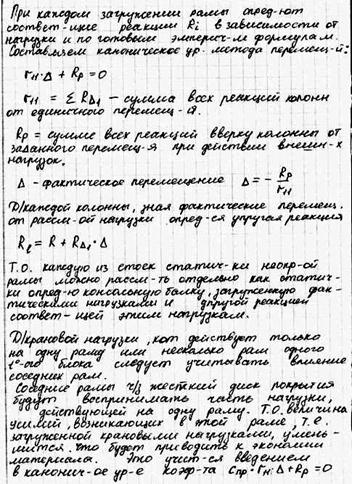 При каждом загружении рамы опред-ют
соответ-щие реакции Ri в зависимости от
нагрузки и по готовым эмперич-м формулам.
Составляем каноническое ур. метода перемещ-й:
r11·Δ + Rp = 0
r11 = Σ RΔ1 – сумма всех реакций колонн
от единичного перемещ-я.
Rp = сумме всех реакций вверху колонны от
заданного перемещ-я при действии внешн-х
нагрузок.
Δ - фактическое перемещение Δ = - Rp/r11
Д/каждой колонны, зная фактические перемещ.
от рассм-ой нагрузки опред-ся упругая реакция
Re = R + RΔ1·Δ
Т.О. каждую из стоек статич-ки неопр-ой
рамы можно рассм-ть отдельно как статич-
ки опред-ю консольную балку, загруженную фак-
тическими нагрузками и другой реакцией
соответ-щей этим нагрузкам.
Д/крановой нагрузки, кот действует только
на одну раму или несколько рам одного
t°-го блока следует учитывать влияние
соседних рам.
Соседние рамы ч/з жесткий диск покрытия
будут воспринимать часть нагрузки,
действующей на одну раму. Т.О. величина
усилий, возникающих в этой раме, т.е.
загруженной крановыми нагрузками, умень-
шится. Что будет приводить к экономии
материала. Это учит-ся введением
в каноничн-ое ур-е коэф-та Cпр·r11·Δ+Rp=0